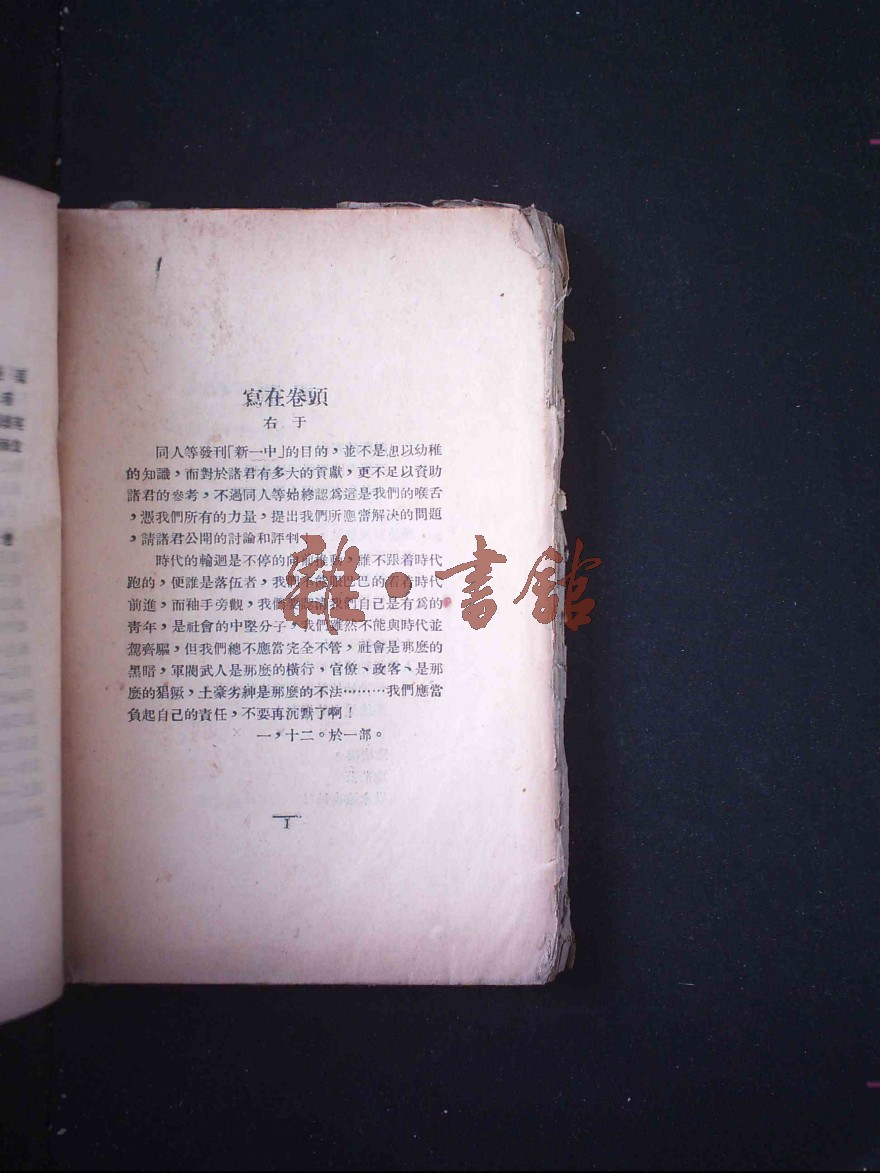 寫在卷頭
右于
同人等發刊「新一中」的目的，並不是想以幼稚
的知識，而對於諸君有多大的貢獻，更不足以資助
諸君的參考，不過同人等始終認爲這是我們的喉舌
，憑我們所有的力量，提出我們所應當解決的問題
，請諸君公開的討論和評判
時代的輪迴是不停的向前推動，誰不跟着時代
跑的，便誰是落伍者，我們不能眼巴巴的看着時代
前進，而袖手旁觀，我們要認清我們自己是有爲的
靑年，是社會的中堅分子，我們雖然不能與時代並
駕齊驅，但我們總不應當完全不管，社會是那麽的
黑暗，軍閥武人是那麽的橫行，官僚、政客、是那
麽的猖厥，土豪劣紳是那麽的不法………我們應當
負起自己的責任，不要再沉默了啊！
一，十二。於一部。
1
雜·書館